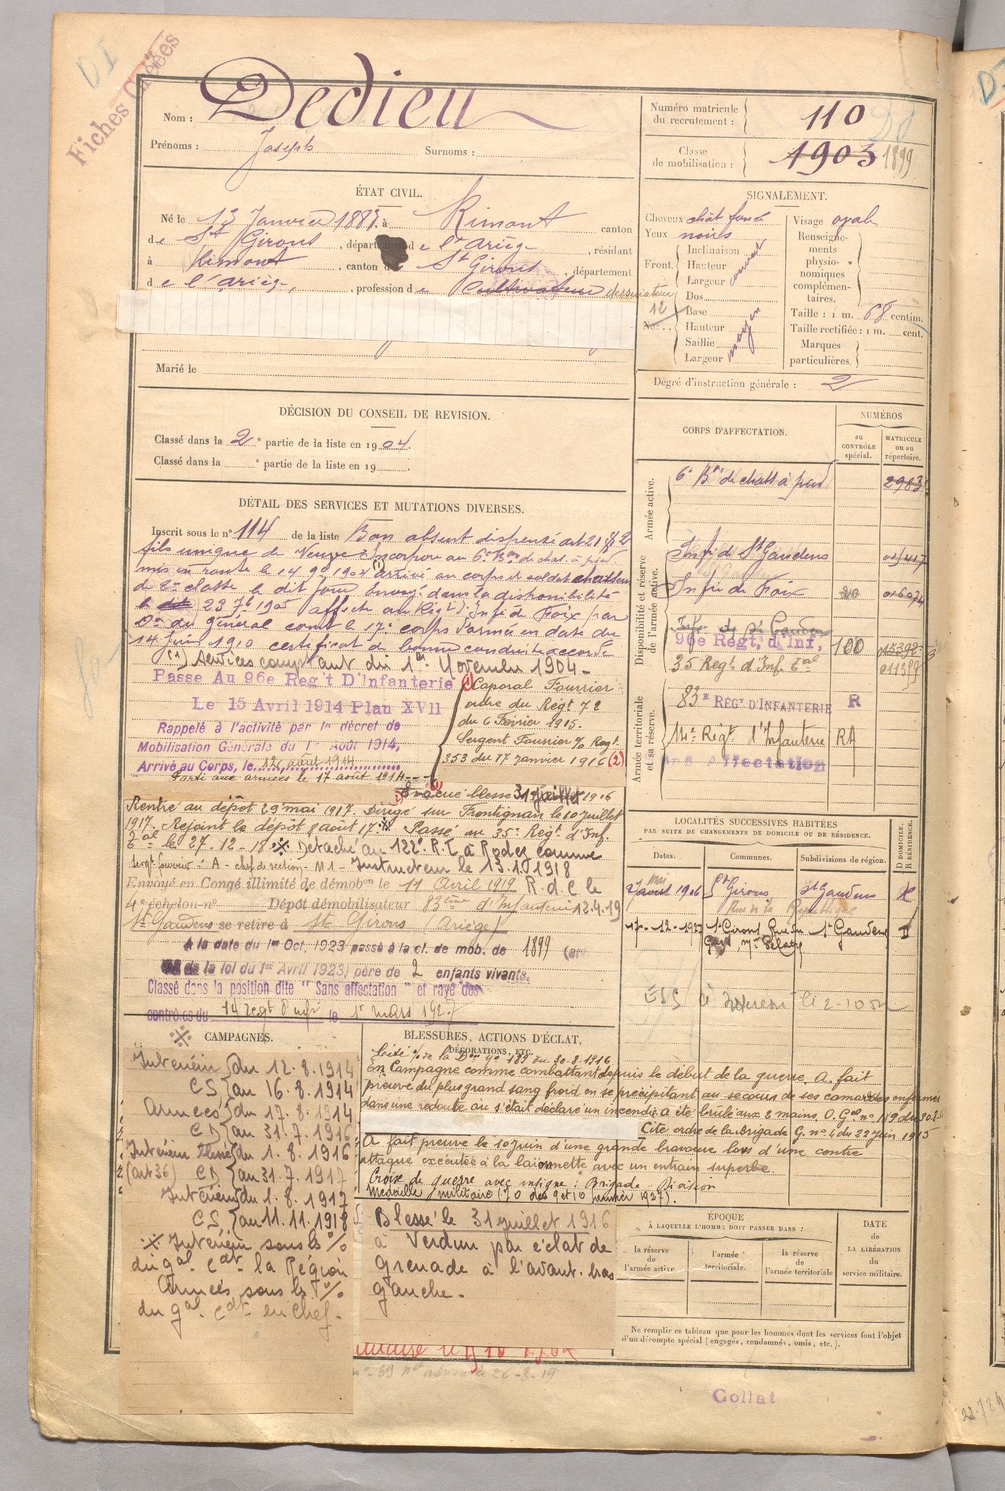 DI
Fiches Créées
Nom : Dedieu
Prénoms : Joseph Surnoms :
Numéro matricule du recrutement : 110
Classe de mobilisation : 1903 1899
ÉTAT CIVIL.
Né le 13 Janvier 188 à Rimont canton
de St Girons, département de l'Ariège, résidant
à Rimont, canton de St Girons, département
de l'Ariège, profession de Cultivateur dessinateur
Marié le
SIGNALEMENT.
Cheveux chât. foncé
Yeux noirs
Front. Inclinaison
Hauteur
Largeur
Nez. Dos
Base
Hauteur
Saillie
Largeur
moyen
Visage ovale
Renseignements physionomiques complémentaires.
Taille : 1 m. 68 centim.
Taille rectifiée : 1 m. cent.
Marques particulières.
Degré d'instruction générale : 2
DÉCISION DU CONSEIL DE REVISION.
Classé dans la 2e partie de la liste en 1904.
Classé dans la e partie de la liste en 19 .
DÉTAIL DES SERVICES ET MUTATIONS DIVERSES.
Inscrit sous le n° 114 de la liste Bon absent dispensé art 21
fils unique de Veuve Incorporé au 6e Bon de chas. à pied
mis en route le 14 9bre 1904 (1) arrivé au corps et soldat chasseur
de 2e classe le dit jour envoyé dans la disponibilité
le 23 7bre 1905 affecté au Régt d'Infie de Foix par
On du Général comt le 17e corps d'armée en date du
14 Juin 1910 certificat de bonne conduite accordé
(1) Services comptant du 1er Novembre 1904 -
Passe Au 96e Reg't D'Infanterie
Le 15 Avril 1914 Plan XVII
Rappelé à l'activité par le décret de
Mobilisation Générale du 1er Août 1914,
Arrivé au Corps, le 12 août 1914
Parti aux armées le 17 août 1914
Caporal Fourrier
ordre du Régt 72
du 6 Février 1915.
Sergent Fourrier % Régt
353 du 17 janvier 1916 (2)
Évacué blessé 31 juillet 1916
Rentré au dépôt 29 mai 1917. Dirigé sur Frontignan le 10 juillet
1917. Rejoint le dépôt 8 août 17. Passé au 35e Régt d'Inf.
Eal le 27-12-18. Détaché au 122e R.I. à Rodez comme
sergt fourrier - A - chef de section - M1 - Instructeur le 13.1.1918
Envoyé en Congé illimité de démobon le 11 Avril 1919 R.d.C le
4e échelon n° Dépôt démobilisateur 83ème d'Infanterie 12.4.19
St Gaudens se retire à St Girons (Ariège)
A la date du 1er Oct. 1923 passé à la cl. de mob. de 1899 (art
de la loi du 1er Avril 1923) père de 2 enfants vivants.
Classé dans la position dite " Sans affectation " et rayé des
contrôles du 14 regt d'infie le 1er mars 1927
CORPS D'AFFECTATION.
NUMÉROS
au CONTRÔLE spécial.
MATRICULE ou au répertoire.
Armée active.
6e Bon de chass. à pied
Disponibilité et réserve de l'armée active.
Infie de St Gaudens
Infie de Foix
Infie de St Gaudens
96e Régt. d'Inf. 100
35 Régt d'Inf Eal 011389
Armée territoriale et sa réserve.
83e RÉGt D'INFANTERIE R
14e Régt d'Infanterie RA
Sans Affectation
LOCALITÉS SUCCESSIVES HABITÉES
PAR SUITE DE CHANGEMENTS DE DOMICILE OU DE RÉSIDENCE.
Dates. Communes. Subdivisions de région. D DOMICILE. R RÉSIDENCE.
1906 St Girons St Gaudens
Rue de la République
17-12-1927 St Girons St Gaudens D
CAMPAGNES.
Intérieur du 12.8.1914
CS au 16.8.1914
Armées du 17.8.1914
CD au 31.7.1916
Intérieur Blessé du 1.8.1916
(art 36) CD au 31.7.1917
Intérieur du 1.8.1917
CS au 11.11.1918
Intérieur sous les %
du gal Cdt la Région
Armées sous les %
du gal Cdt en chef.
BLESSURES, ACTIONS D'ÉCLAT,
DÉCORATIONS, ETC.
Cité % de la Don n° 189 du 30.8.1916
En Campagne comme combattant depuis le début de la guerre. A fait
preuve du plus grand sang froid en se précipitant au secours de ses camarades enfermés
dans une redoute où s'était déclaré un incendie a été brûlé aux 2 mains. O. Gal n° 119 du
Cité ordre de la Brigade G. n° 4 du 22 juin 1915
A fait preuve le 10 juin d'une grande bravoure lors d'une contre
attaque exécutée à la baïonnette avec un entrain superbe.
Croix de guerre avec insigne : Brigade - Division
Médaille militaire (J.O des 9 et 10 février 1927).
Blessé le 31 juillet 1916
à Verdun par éclat de
grenade à l'avant-bras
gauche.
ÉPOQUE
À LAQUELLE L'HOMME DOIT PASSER DANS :
la réserve de l'armée active.
l'armée territoriale.
la réserve de l'armée territoriale
DATE DE LA LIBÉRATION DU service militaire.
Ne remplir ce tableau que pour les hommes dont les services font l'objet
d'un décompte spécial (engagés, condamnés, omis, etc.).
Collat